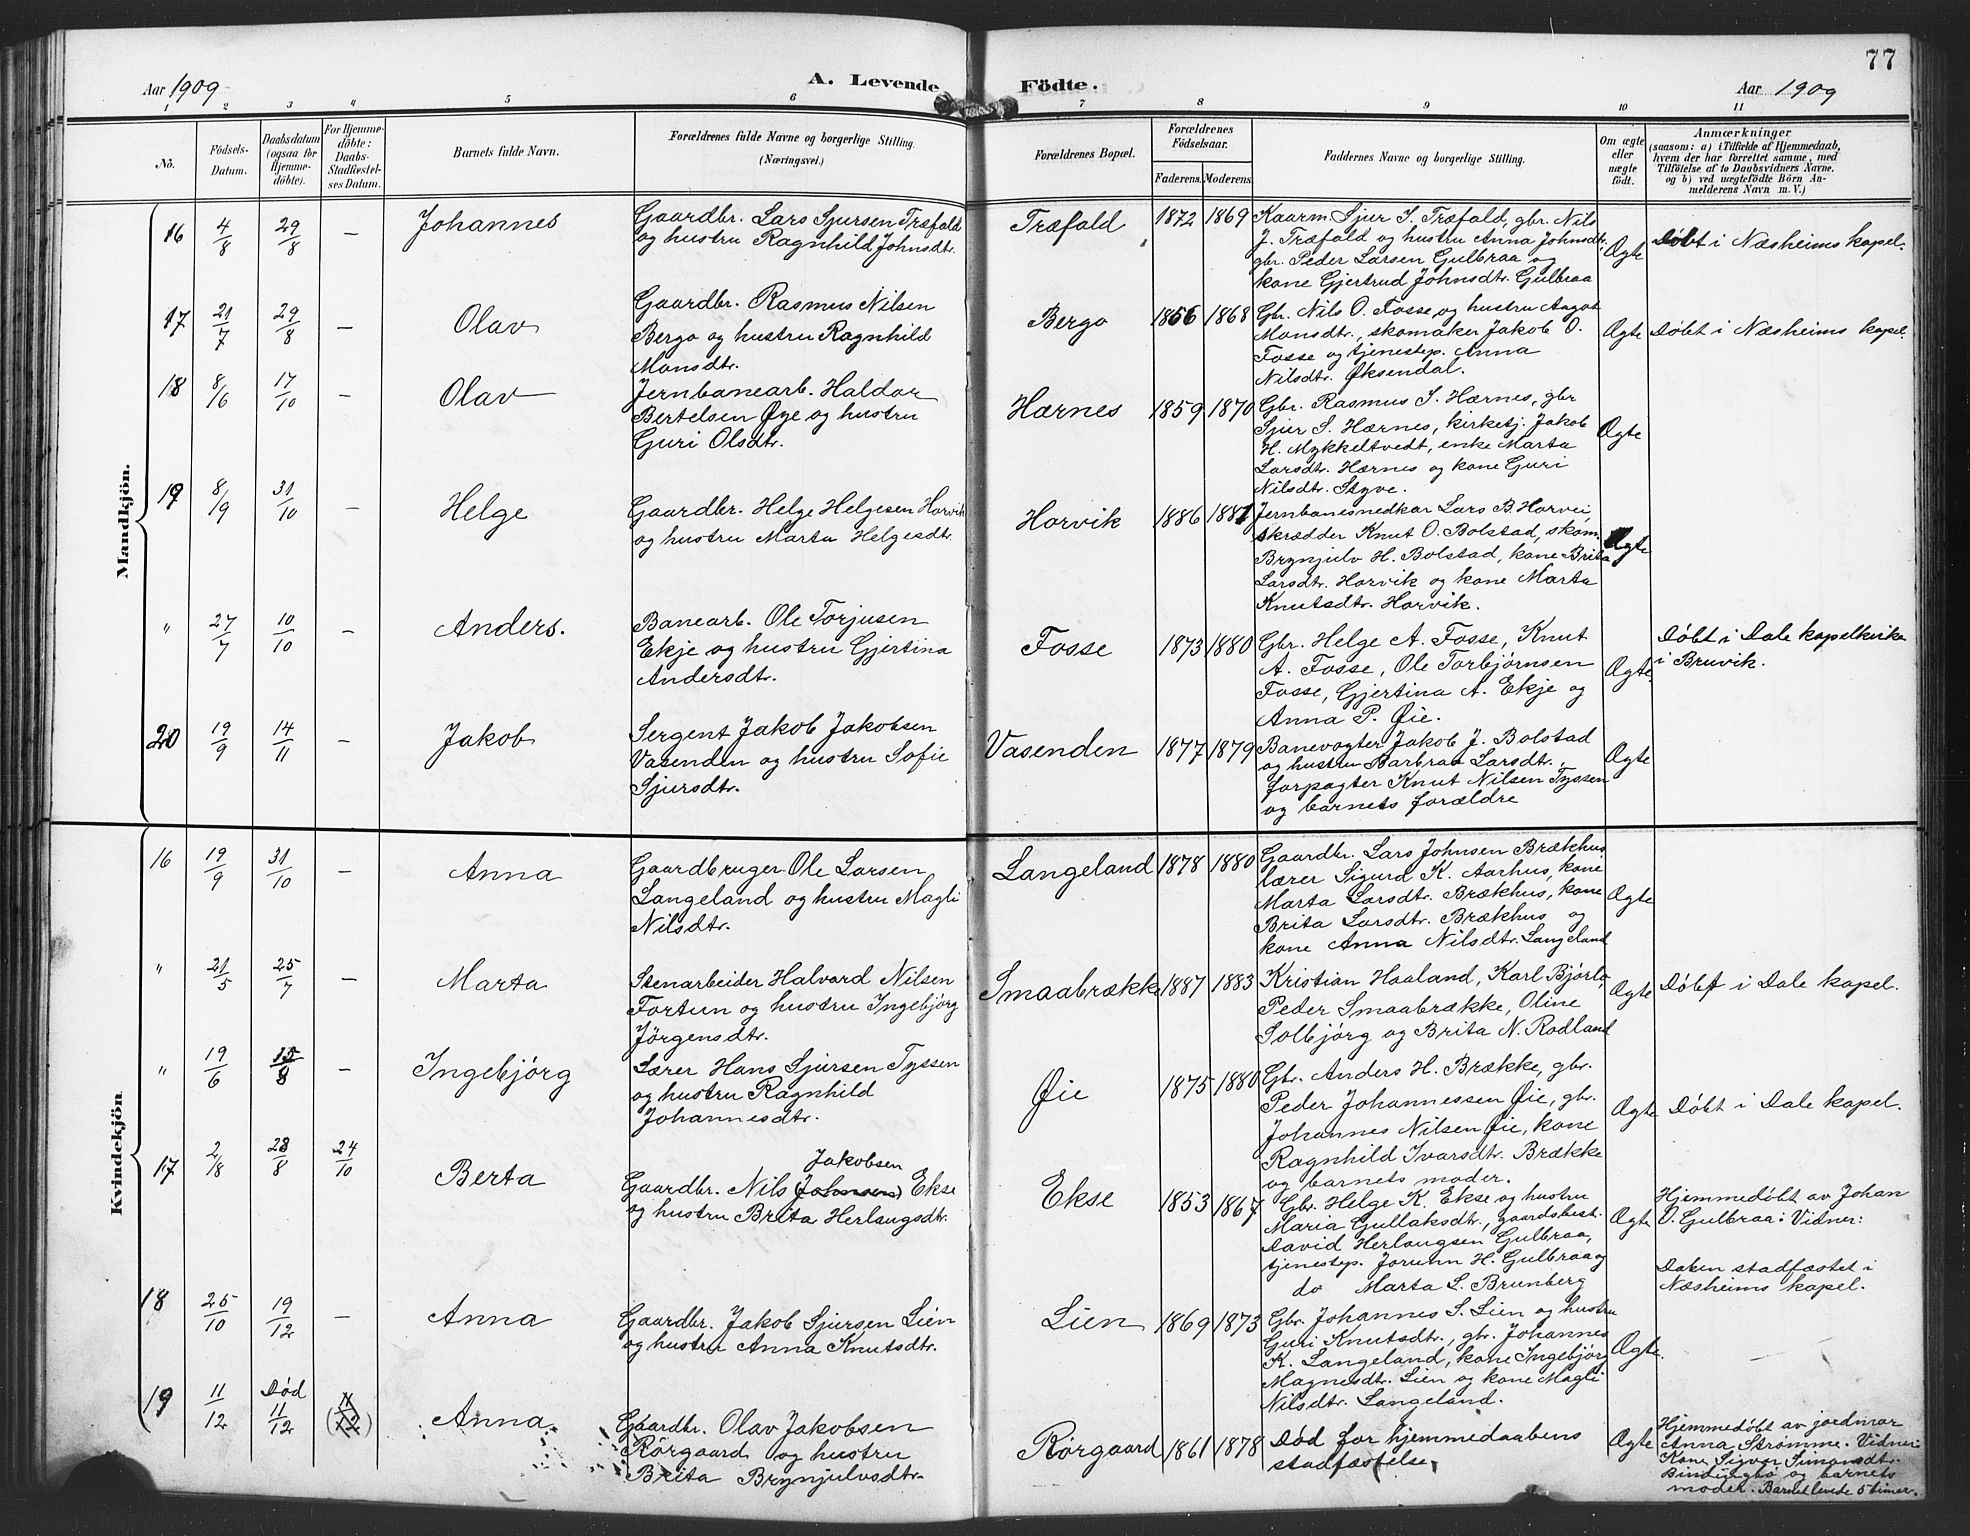 77
Aar 1909
A. Levende Födte.
Aar 1909
1 2 3 4 5 6 7 8 9 10 11
No.
Födsels-
Datum.
Daabsdatum
(ogsaa for
Hjemme-
döbte).
For Hjemme-
döbte:
Daabs-
Stadfestel-
ses Datum.
Barnets fulde Navn.
Forældrenes fulde Navne og borgerlige Stilling.
(Næringsvei.)
Forældrenes Bopæl.
Forældrenes
Födselsaar.
Faderens. Moderens
Faddernes Navne og borgerlige Stilling.
Om ægte
eller
uægte
födt.
Anmærkninger
(saasom: a) i Tilfælde af Hjemmedaab,
hvem der har forrettet samme, med
Tilföielse af to Daabsvidners Navne.
og b) ved uægtefödte Börn An-
melderens Navn m. V.)
Mandkjön.
16 4/8 29/8 — Johannes
Gaardbr. Lars Sjursen Træfald
og hustru Ragnhild Johnsdtr.
Træfald 1872 1869
Kaarm. Sjur S. Træfald, gbr. Nils
J. Træfald og hustru Anna Johnsdtr.
gbr. Peder Larsen Gulbraa og
kone Gjertrud Johnsdtr. Gulbraa
Ægte
Döbt i Næsheims kapel.
17 21/7 29/8 — Olav
Gaardbr. Rasmus Nilsen
Bergo og hustru Ragnhild
Monsdtr.
Bergo 1856 1868
Gbr. Nils O. Fosse og hustru Aagot
Monsdtr., skomaker Jakob O.
Fosse og tjenestep. Anna
Nilsdtr. Øksendal.
Ægte
Döbt i Næsheims kapel.
18 8/6 17/10 — Olav
Jernbanearb. Haldor
Bertelsen Øye og hustru
Guri Olsdtr.
Hærnes 1859 1870
Gbr. Rasmus S. Hærnes, gbr
Sjur S. Hærnes, kirketj. Jakob
H. Mykkeltvedt, enke Marta
Larsdtr. Hærnes og kone Guri
Nilsdtr. Styve.
Ægte
19 8/9 31/10 — Helge
Gaardbr. Helge Helgesen Horvik
og hustru Marta Helgesdtr.
Horvik 1886 1881
Jernbanesnedkar Lars B. Horvei
skrædder Knut O. Bolstad, skom.
Brynjulv H. Bolstad, kone Brita
Larsdtr. Horvik og kone Marta
Knutsdtr. Horvik.
Ægte
" 27/7 10/10 — Anders.
Banearb. Ole Torjusen
Ekje og hustru Gjertina
Andersdtr.
Fosse 1873 1880
Gbr. Helge A. Fosse, Knut
A. Fosse, Ole Torbjørnsen
Fosse, Gjertina A. Ekje og
Anna P. Øie.
Ægte.
Döbt i Dale kapelkirke
i Bruvik.
20 19/9 14/11 — Jakob
Sergent Jakob Jakobsen
Vasenden og hustru Sofie
Sjursdtr.
Vasenden 1877 1879
Banevogter Jakob J. Bolstad
og hustru Barbraa Larsdtr.,
forpagter Knut Nilsen Tyssen
og barnets forældre
Ægte
Kvindekjön
16 19/9 31/10 — Anna
Gaardbruger Ole Larsen
Langeland og hustru Magli
Nilsdtr.
Langeland 1878 1880
Gaardbr. Lars Johnsen Brækhus
lærer Sigurd K. Aarhus, kone
Marta Larsdtr. Brækhus, kone
Brita Larsdtr. Brækhus, og
kone Anna Nilsdtr. Langeland
Ægte
" 21/5 25/7 — Marta
Stenarbeider Halvard Nilsen
Fortun og hustru Ingebjørg
Jørgensdtr.
Smaabrække 1887 1883
Kristian Haaland, Karl Bjørlo,
Peder Smaabrække, Oline
Solbjörg og Brita N. Rodland
Ægte
Döbt i Dale kapel.
" 19/6 15/8 — Ingebjörg
Lærer Hans Sjursen Tyssen
og hustru Ragnhild
Johannesdtr.
Øie 1875 1880
Gbr. Anders H. Brække, gbr.
Peder Johannessen Øie, gbr.
Johannes Nilsen Øie, kone
Ragnhild Ivarsdtr. Brække
og barnets moder.
Ægte
Döbt i Dale kapel.
17 2/8 28/8 24/10 Berta
Jakobsen
Gaardbr. Nils (Johnsen) Ekse
og hustru Brita Herlaugsdtr.
Ekse 1853 1867
Gbr. Helge K. Ekse og hustru
Maria Gullaksdtr., gaardsbest.
David Herlaugsen Gulbraa,
tjenestep. Jorunn H. Gulbraa og
do Marta L. Brunberg
Ægte
Hjemmedöbt av Johan
O. Gulbraa: Vidner:
Daben stadfæstet i
Næsheims kapel.
18 25/10 19/12 — Anna
Gaardbr. Jakob Sjursen Lien
og hustru Anna Knutsdtr.
Lien 1869 1873
Gbr. Johannes S. Lien og hustru
Guri Knutsdtr., gbr. Johannes
K. Langeland, kone Ingebjörg
Magnesdtr. Lien og kone Magli
Nilsdtr. Langeland.
Ægte.
19 11/12 Död 11/12 (11/12) Anna
Gaardbr. Olav Jakobsen
Rörgaard og hustru
Brita Brynjulvsdtr.
Rörgaard 1861 1878
Död før hjemmedaabens
stadfæstelse.
Ægte
Hjemmedöbt av jordmor
Anna Strømme. Vidner:
Kone Sigvor Simonsdtr.
Bindingbø og barnets
moder. Barnet levede 5 timer.